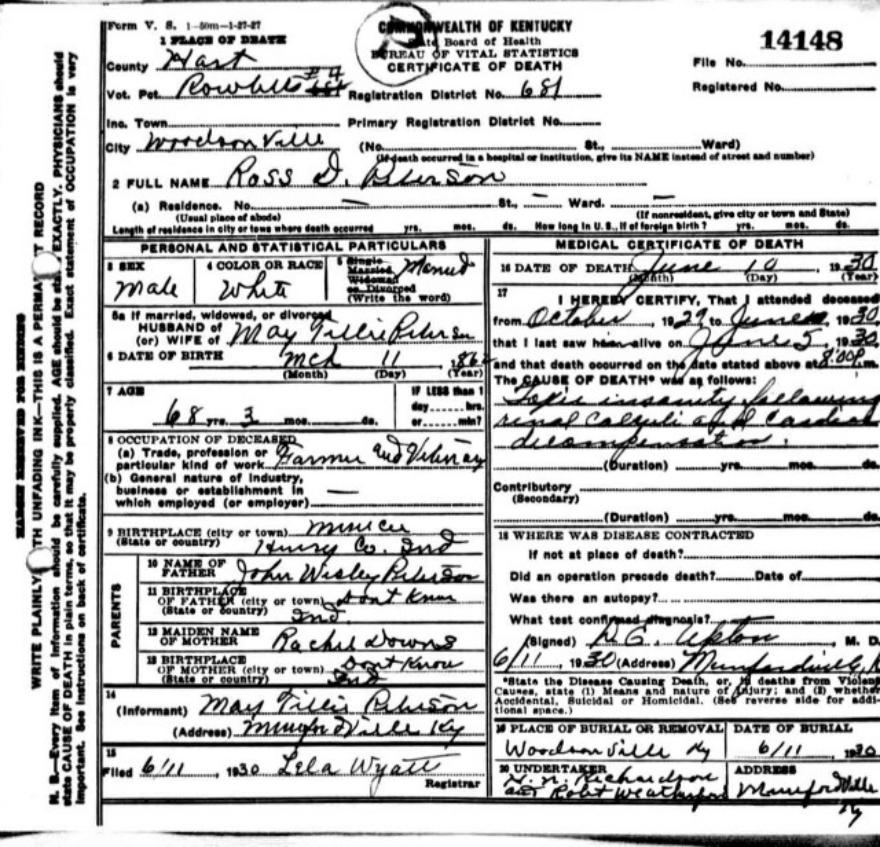 Form V. S. 1-50m-1-27-27
COMMONWEALTH OF KENTUCKY
State Board of Health
BUREAU OF VITAL STATISTICS
CERTIFICATE OF DEATH
14148
File No.
Registered No.
1 PLACE OF DEATH
County Hart
Vot. Pct. # 4 Registration District No. 681
Inc. Town Primary Registration District No.
City Woodsonville (No. St., Ward)
(If death occurred in a hospital or institution, give its NAME instead of street and number)
2 FULL NAME Ross D. Peterson
(a) Residence. No. — St., — Ward. —
(Usual place of abode) (If nonresident, give city or town and State)
Length of residence in city or town where death occurred yrs. mos. ds. How long in U. S., if of foreign birth? yrs. mos. ds.
PERSONAL AND STATISTICAL PARTICULARS
3 SEX Male
4 COLOR OR RACE White
5 Single Married Widowed or Divorced (Write the word) Married
5a If married, widowed, or divorced
HUSBAND of
(or) WIFE of May Tillie Peterson
6 DATE OF BIRTH Mch 11 186
(Month) (Day) (Year)
7 AGE
68 yrs. 3 mos. ds.
IF LESS than 1
day hrs.
or min?
8 OCCUPATION OF DECEASED
(a) Trade, profession or
particular kind of work Farmer and
(b) General nature of industry,
business or establishment in
which employed (or employer) —
9 BIRTHPLACE (city or town)
(State or country) Henry Co. Ind
PARENTS
10 NAME OF
FATHER John Wesley Peterson
11 BIRTHPLACE
OF FATHER (city or town) Dont Know
(State or country) Ind.
12 MAIDEN NAME
OF MOTHER Rachel Downs
13 BIRTHPLACE
OF MOTHER (city or town) Dont Know
(State or country) Ind
14
(Informant) May Tillie Peterson
(Address) Munfordville Ky
15
Filed 6/11, 1930 Lela Wyatt
Registrar
MEDICAL CERTIFICATE OF DEATH
16 DATE OF DEATH June 10 1930
(Month) (Day)
17
I HEREBY CERTIFY, That I attended deceased
from October, 1929 to June, 1930
that I last saw him alive on June 5, 1930
and that death occurred on the date stated above at 8:00 P.m.
The CAUSE OF DEATH* was as follows:
Toxic insanity following
renal calculi and cardiac
decompensation.
(Duration) yrs. mos. ds.
Contributory
(Secondary)
(Duration) yrs. mos. ds.
18 WHERE WAS DISEASE CONTRACTED
If not at place of death?
Did an operation precede death? Date of
Was there an autopsy?
What test confirmed diagnosis?
(Signed) Upton, M. D.
6/11, 1930 (Address) Munfordville, K
*State the Disease Causing Death, or, in deaths from Violent
Causes, state (1) Means and nature of Injury; and (2) whether
Accidental, Suicidal or Homicidal. (See reverse side for addi-
tional space.)
19 PLACE OF BURIAL OR REMOVAL
Woodsonville Ky
DATE OF BURIAL
6/11 1930
20 UNDERTAKER
H. N. Richardson
and Robt Weatherford
ADDRESS
Munfordville
Ky
MARGIN RESERVED FOR BINDING
WRITE PLAINLY WITH UNFADING INK—THIS IS A PERMA T RECORD
N. B.—Every item of information should be carefully supplied. AGE should be EXACTLY. PHYSICIANS should
state CAUSE OF DEATH in plain terms, so that it may be properly classified. Exact statement of OCCUPATION is very
important. See instructions on back of certificate.